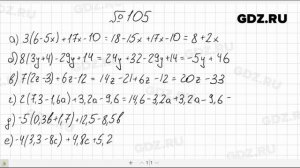 GDZ.RU
№ 105
а) 3(6-5x)+17x-10 = 18-15x+17x-10 = 8+2x
б) 8(3y+4)-29y+14 = 24y+32-29y+14 = -5y+46
в) 7(2z-3)+6z-12 = 14z-21+6z-12 = 20z-33
г) 2(7,3-1,6a)+3,2a-9,6 = 14,6-3,2a+3,2a-9,6 =
д) -5(0,3b+1,7)+12,5-8,5b
е) -4(3,3-8c)+4,8c+5,2
GDZ.RU
1/1